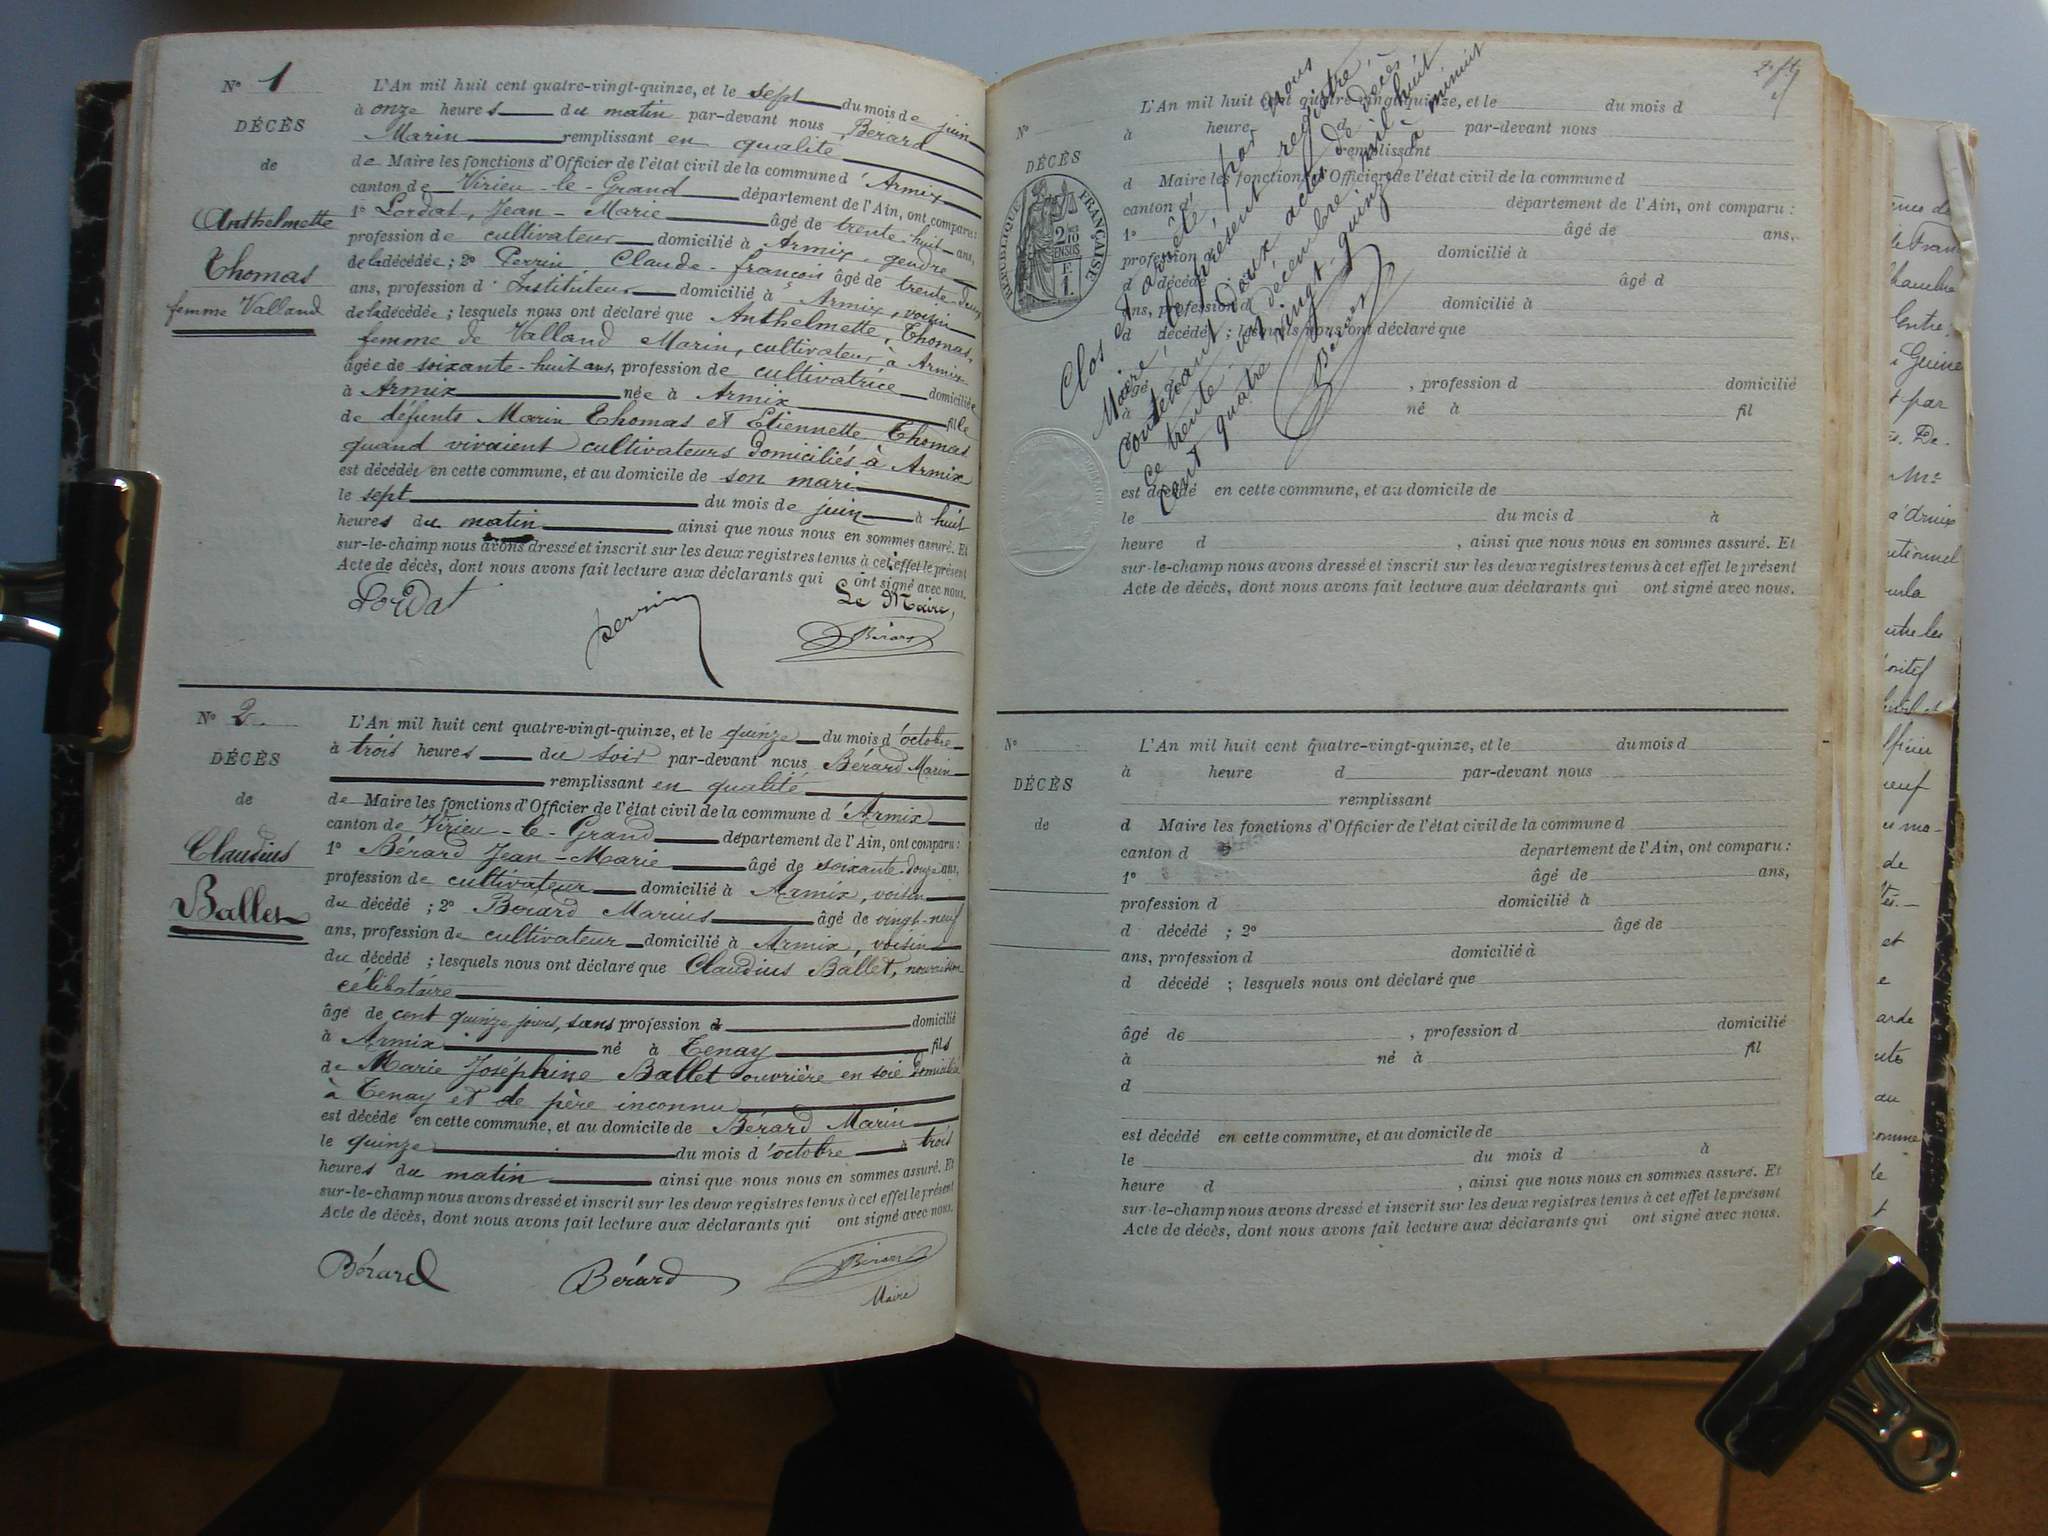 N° 1
DÉCÈS
de
Anthelmette
Thomas
femme Valland
L'An mil huit cent quatre-vingt-quinze, et le sept du mois de juin
à onze heures du matin par-devant nous Bérard
Marin remplissant en qualité
de Maire les fonctions d'Officier de l'état civil de la commune d'Armix
canton de Virieu-le-Grand département de l'Ain, ont comparu:
1° Lordat, Jean-Marie âgé de trente-huit ans,
profession de cultivateur domicilié à Armix, gendre
de la décédée; 2° Perrin Claude-françois âgé de trente-deux
ans, profession d'Instituteur domicilié à Armix, voisin
de la décédée; lesquels nous ont déclaré que Anthelmette, Thomas,
femme de Valland Marin, cultivateur à Armix
âgée de soixante-huit ans, profession de cultivatrice domiciliée
à Armix née à Armix fille
de défunts Marin Thomas et Etiennette Thomas
quand vivaient cultivateurs domiciliés à Armix
est décédée en cette commune, et au domicile de son mari
le sept du mois de juin à huit
heures du matin ainsi que nous nous en sommes assuré. Et
sur-le-champ nous avons dressé et inscrit sur les deux registres tenus à cet effet le présent
Acte de décès, dont nous avons fait lecture aux déclarants qui ont signé avec nous.
Lordat perrin Le Maire,
Bérard
N° 2
DÉCÈS
de
Claudius
Ballet
L'An mil huit cent quatre-vingt-quinze, et le quinze du mois d'octobre
à trois heures du soir par-devant nous Bérard Marin
remplissant en qualité
de Maire les fonctions d'Officier de l'état civil de la commune d'Armix
canton de Virieu-le-Grand département de l'Ain, ont comparu:
1° Bérard Jean-Marie âgé de soixante-douze ans,
profession de cultivateur domicilié à Armix, voisin
du décédé; 2° Bérard Marius âgé de vingt-neuf
ans, profession de cultivateur domicilié à Armix, voisin
du décédé; lesquels nous ont déclaré que Claudius Ballet, nourrisson
célibataire
âgé de cent quinze jours, sans profession d domicilié
à Armix né à Tenay fils
de Marie Joséphine Ballet ouvrière en soie domiciliée
à Tenay et de père inconnu
est décédé en cette commune, et au domicile de Bérard Marin
le quinze du mois d'octobre à trois
heures du matin ainsi que nous nous en sommes assuré. Et
sur-le-champ nous avons dressé et inscrit sur les deux registres tenus à cet effet le présent
Acte de décès, dont nous avons fait lecture aux déclarants qui ont signé avec nous.
Bérard Bérard Bérard
Maire
N°
DÉCÈS
RÉPUBLIQUE FRANÇAISE
L'An mil huit cent quatre-vingt-quinze, et le du mois d
à heure d par-devant nous
remplissant
d Maire les fonctions d'Officier de l'état civil de la commune d
canton d département de l'Ain, ont comparu:
1° âgé de ans,
profession d domicilié à
d décédé âgé d
ans, profession d domicilié à
d décédé; lesquels nous ont déclaré que
âgé , profession d domicilié
à né à fil
est décédé en cette commune, et au domicile de
le du mois d à
heure d , ainsi que nous nous en sommes assuré. Et
sur-le-champ nous avons dressé et inscrit sur les deux registres tenus à cet effet le présent
Acte de décès, dont nous avons fait lecture aux déclarants qui ont signé avec nous.
Clos et arrêté, par nous
Maire, le présent registre,
Contenant deux actes de décès
Ce trente un décembre mil huit
Cent quatre vingt-quinze à minuit
Bérard
N°
DÉCÈS
de
L'An mil huit cent quatre-vingt-quinze, et le du mois d
à heure d par-devant nous
remplissant
d Maire les fonctions d'Officier de l'état civil de la commune d
canton d département de l'Ain, ont comparu:
1° âgé de ans,
profession d domicilié à
d décédé; 2° âgé de
ans, profession d domicilié à
d décédé; lesquels nous ont déclaré que
âgé de , profession d domicilié
à né à fil
d
est décédé en cette commune, et au domicile de
le du mois d à
heure d , ainsi que nous nous en sommes assuré. Et
sur-le-champ nous avons dressé et inscrit sur les deux registres tenus à cet effet le présent
Acte de décès, dont nous avons fait lecture aux déclarants qui ont signé avec nous.